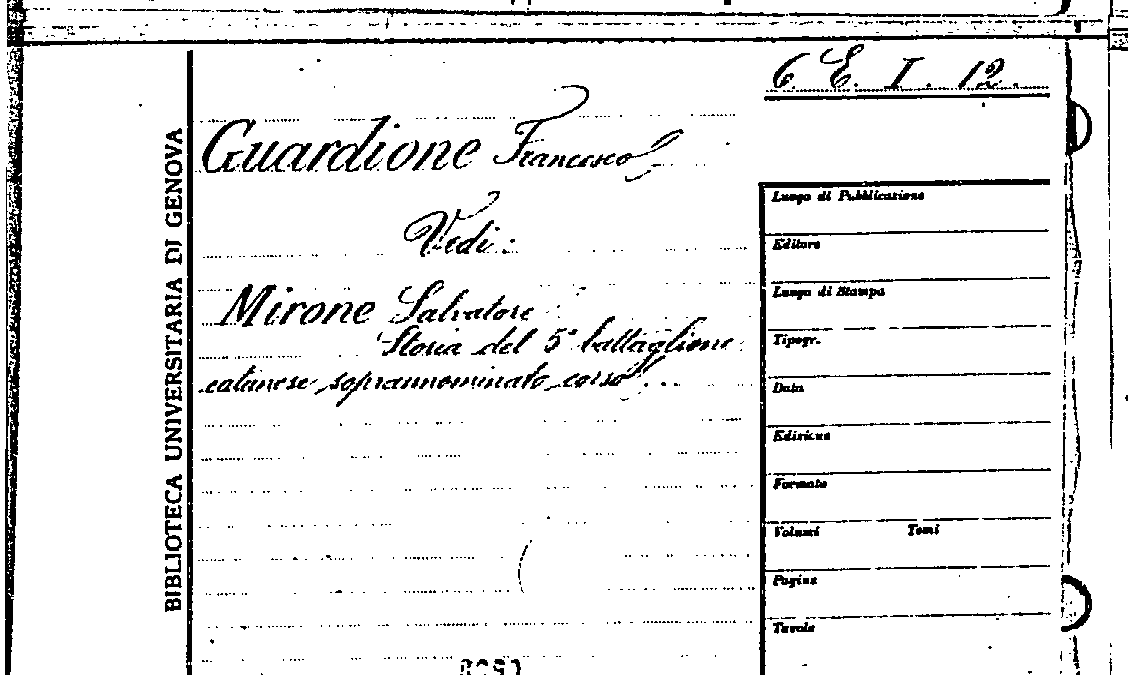 6. E. I. 12.
BIBLIOTECA UNIVERSITARIA DI GENOVA
Guardione Francesco
Vedi:
Mirone Salvatore
Storia del 5° battaglione
catanese soprannominato corso...
Luogo di Pubblicazione
Editore
Luogo di Stampa
Tipogr.
Data
Edizione
Formato
Volumi Tomi
Pagine
Tavole